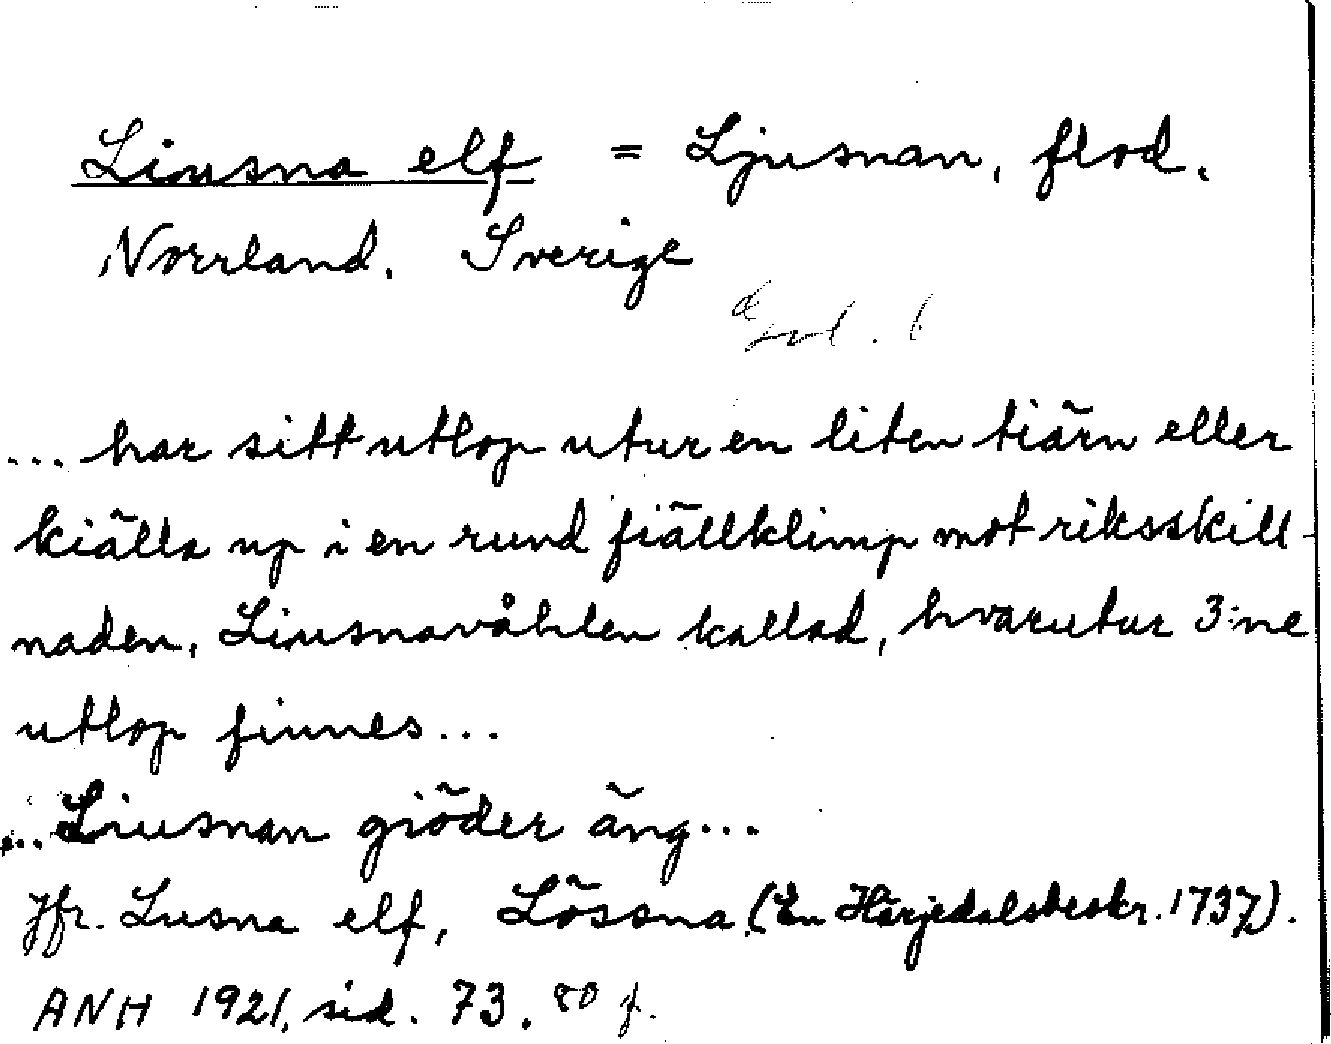 Liusna elf = Ljusnan, flod,
Norrland. Sverige
... har sitt utlop utur en liten tiärn eller
kiälla up i en rund fiällklimp mot riksskill-
naden, Liusnavåhlen kallad, hvarutur 3:ne
utlop finnes...
... Liusnan giöder äng...
Jfr. Lusna elf, Lössna (En Härjedalsbeskr. 1737).
ANH 1921, sid. 73. 80 f.